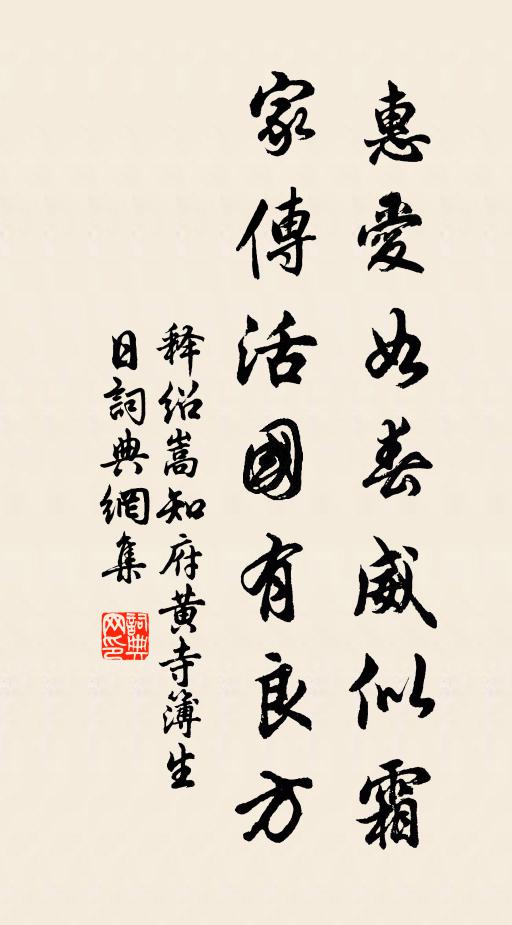 惠愛如春威似霜
家傳活國有良方
释绍嵩知府黄寺簿生
日詞典網集
詞典网印